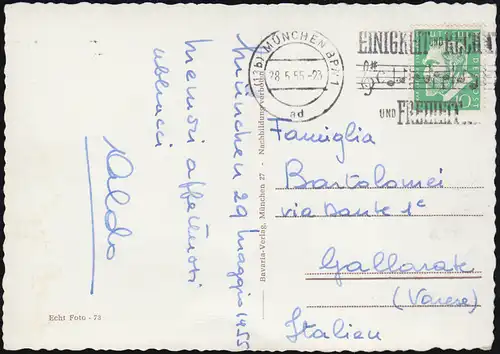 München 29 maggio 1955
Memori affettuosi
abbracci
Aldo
Echt Foto - 73
Bavaria-Verlag, München 27 - Nachbildung verboten
(13b) MÜNCHEN BPA 1
28.5.55-23
ad
EINIGKEIT UND RECHT
UND FREIHEIT
Famiglia
Bartolomei
via Dante 1c
Gallarate
(Varese)
Italien